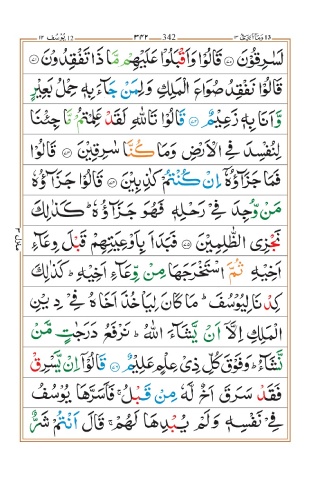 ١٢ يُوْسُف ١٢ ٣٤٢ 342 وَمَآ اُبَرِّئُ ١٣
لَسٰرِقُوْنَ ۞ قَالُوْا وَاَقْبَلُوْا عَلَيْهِمْ مَّا ذَا تَفْقِدُوْنَ ۞
قَالُوْا نَفْقِدُ صُوَاعَ الْمَلِكِ وَلِمَنْ جَآءَ بِهٖ حِمْلُ بَعِيْرٍ
وَّاَنَا بِهٖ زَعِيْمٌ ۞ قَالُوْا تَاللّٰهِ لَقَدْ عَلِمْتُمْ مَّا جِئْنَا
لِنُفْسِدَ فِى الْاَرْضِ وَمَا كُنَّا سٰرِقِيْنَ ۞ قَالُوْا
فَمَا جَزَآؤُهٗٓ اِنْ كُنْتُمْ كٰذِبِيْنَ ۞ قَالُوْا جَزَآؤُهٗ
مَنْ وُّجِدَ فِىْ رَحْلِهٖ فَهُوَ جَزَآؤُهٗ ؕ كَذٰلِكَ
نَجْزِى الظّٰلِمِيْنَ ۞ فَبَدَاَ بِاَوْعِيَتِهِمْ قَبْلَ وِعَآءِ
اَخِيْهِ ثُمَّ اسْتَخْرَجَهَا مِنْ وِّعَآءِ اَخِيْهِ ؕ كَذٰلِكَ
كِدْنَا لِيُوْسُفَ ؕ مَا كَانَ لِيَاْخُذَ اَخَاهُ فِىْ دِيْنِ
الْمَلِكِ اِلَّاۤ اَنْ يَّشَآءَ اللّٰهُ ؕ نَرْفَعُ دَرَجٰتٍ مَّنْ
نَّشَآءُ ؕ وَفَوْقَ كُلِّ ذِىْ عِلْمٍ عَلِيْمٌ ۞ قَالُوْۤا اِنْ يَّسْرِقْ
فَقَدْ سَرَقَ اَخٌ لَّهٗ مِنْ قَبْلُ ۚ فَاَسَرَّهَا يُوْسُفُ
فِىْ نَفْسِهٖ وَلَمْ يُبْدِهَا لَهُمْ ۚ قَالَ اَنْتُمْ شَرٌّ